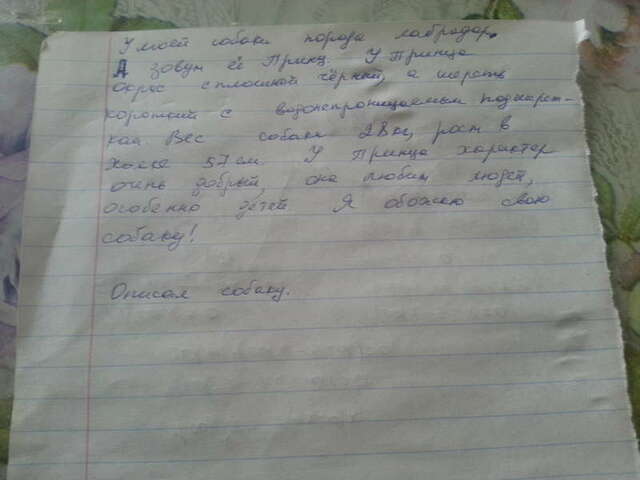 У моей собаки порода лабрадор.
А зовут её Принц. У Принца
окрас сплошной чёрный, а шерсть
короткий с водонепроницаемым подшерст-
кам Вес собаки 28 кг, рост в
холке 57 см У Принца характер
очень добрый, она любит людей,
особенно детей Я обожаю свою
собаку!
Описал собаку.